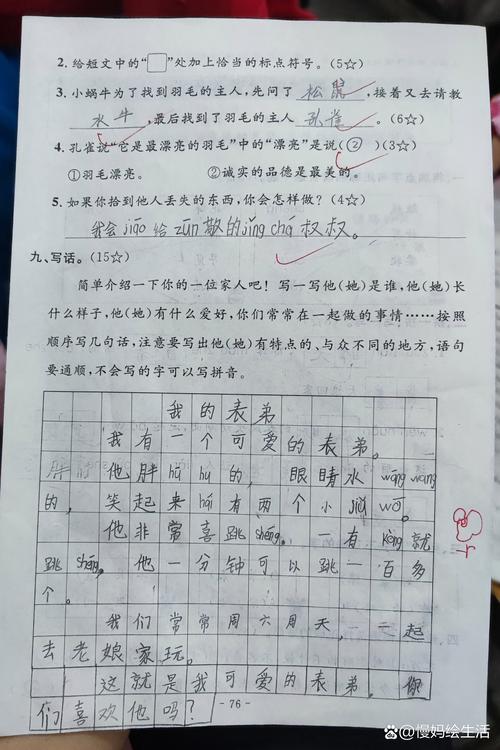 2. 给短文中的“□”处加上恰当的标点符号。(5☆)
3. 小蜗牛为了找到羽毛的主人,先问了 松鼠 ,接着又去请教
水牛 ,最后找到了羽毛的主人 孔雀 。(6☆)
4. 孔雀说“它是最漂亮的羽毛”中的“漂亮”是说( ② )(3☆)
①羽毛漂亮。 ②诚实的品德是最美的。
5. 如果你拾到他人丢失的东西,你会怎样做?(4☆)
我会jiāo给zūn敬的jǐng chá叔叔。
九、写话。(15☆)
简单介绍一下你的一位家人吧!写一写他(她)是谁,他(她)长
什么样子,他(她)有什么爱好,你们常常在一起做的事情……按照
顺序写几句话,注意要写出他(她)有特点的、与众不同的地方,语句
要通顺,不会写的字可以写拼音。
我的表弟
我有一个可爱的表弟。
他胖hū hū的,眼睛水wāng wang
的,笑起来hái有两个小jiǔ wō。
他非常喜跳shéng。一有kòng就
跳shéng。他一分钟可以跳一百多
个。
我们常常周六周天,一起
去老娘家玩。
这就是我可爱的表弟,你
们喜欢他吗?
- 76 -
慢妈绘生活